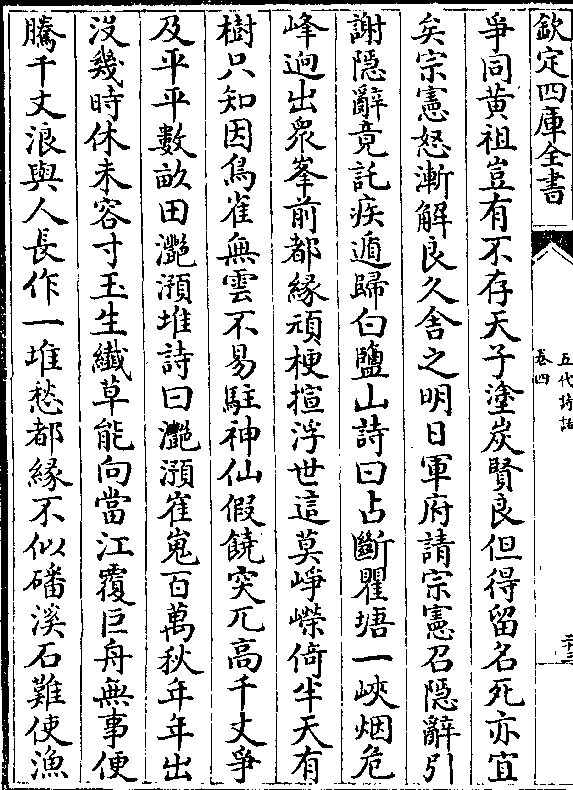 欽定四庫全書
五代詩話
卷四
爭同黄祖豈有不存天子塗炭賢良但得留名死亦宜
矣宗憲怒漸解良久舍之明日軍府請宗憲召隠辭引
謝隠辭竟託疾遁歸白鹽山詩曰占斷瞿塘一峽烟危
峰逈出衆峯前都縁頑梗揎浮世這莫崢嶸倚半天有
樹只知因鳥雀無雲不易駐神仙假饒突兀高千丈爭
及平平數畝田灔澦堆詩曰灔澦崔嵬百萬秋年年出
没幾時休未容寸玉生纎草能向當江覆巨舟無事便
騰千丈浪與人長作一堆愁都縁不似磻溪石難使漁